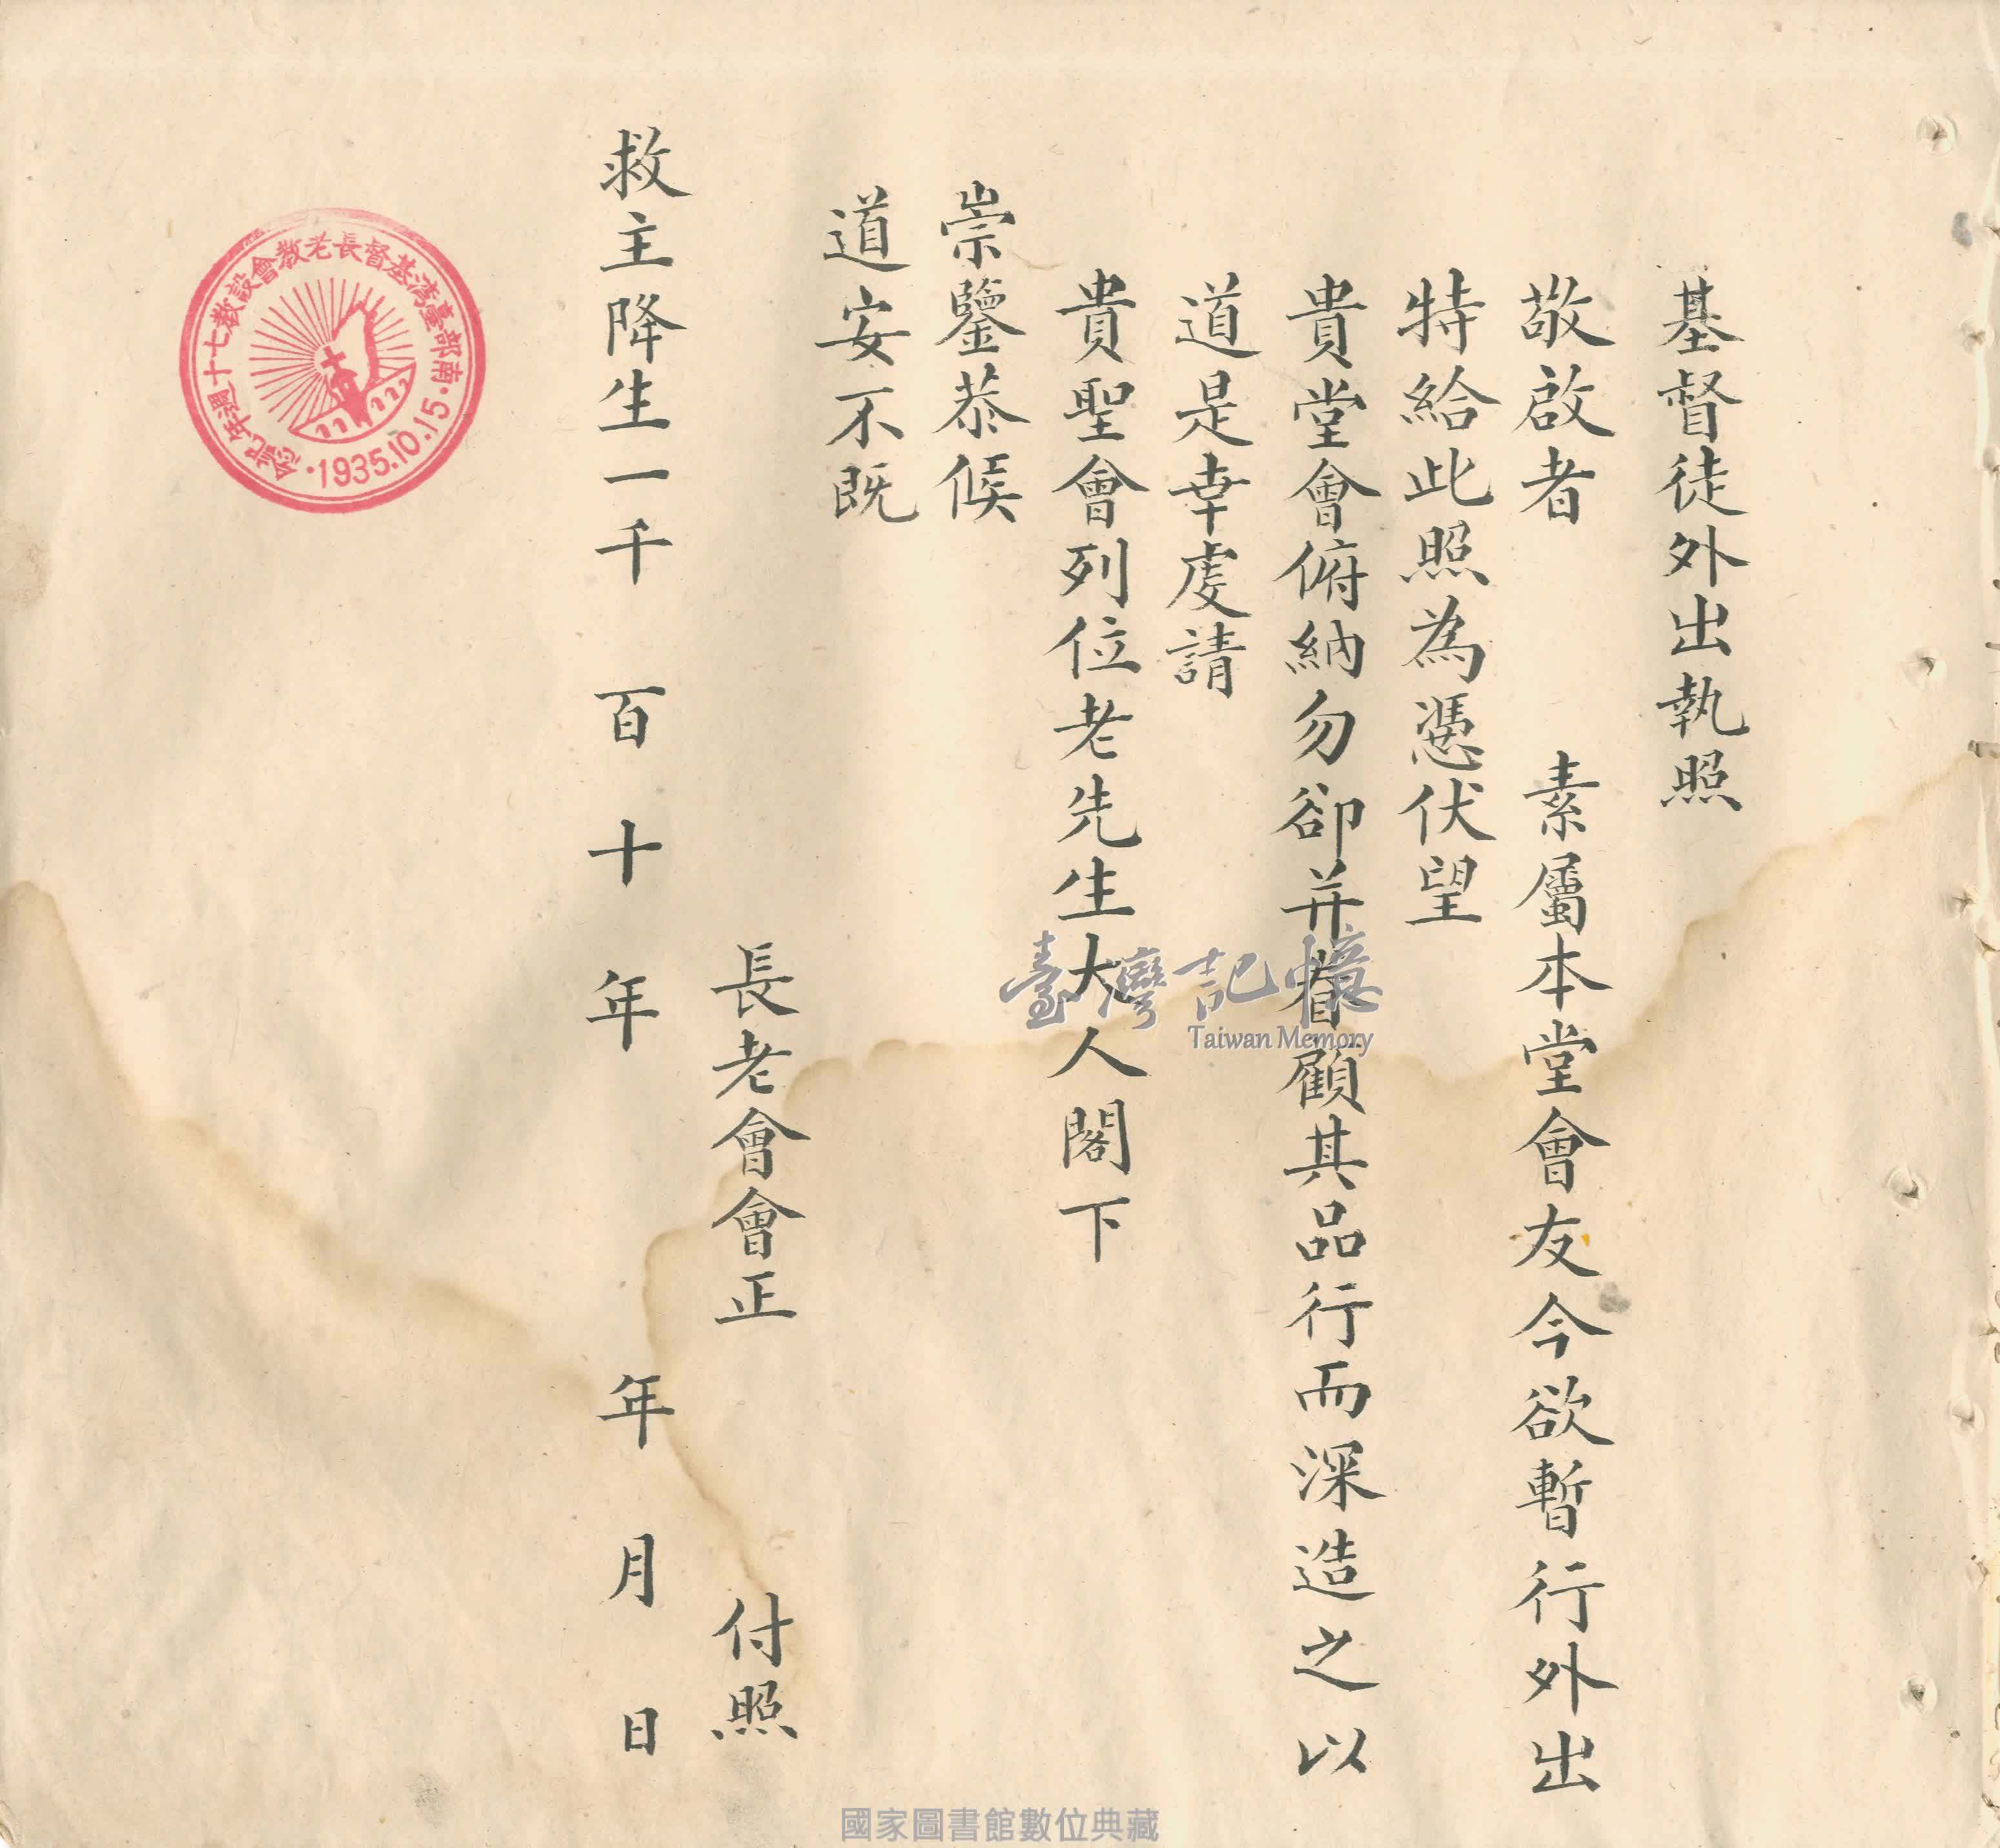 基督徒外出執照
敬啟者 素屬本堂會友今欲暫行外出
特給此照為憑伏望
貴堂會俯納勿卻并眷顧其品行而深造之以
道是幸虔請
貴聖會列位老先生大人閣下
崇鑒恭候
道安不既
長老會會正 付照
救主降生一千 百 十 年 年 月 日
南部臺灣基督長老教會設教七十週年記念
1935.10.15
臺灣記憶
Taiwan Memory
國家圖書館數位典藏